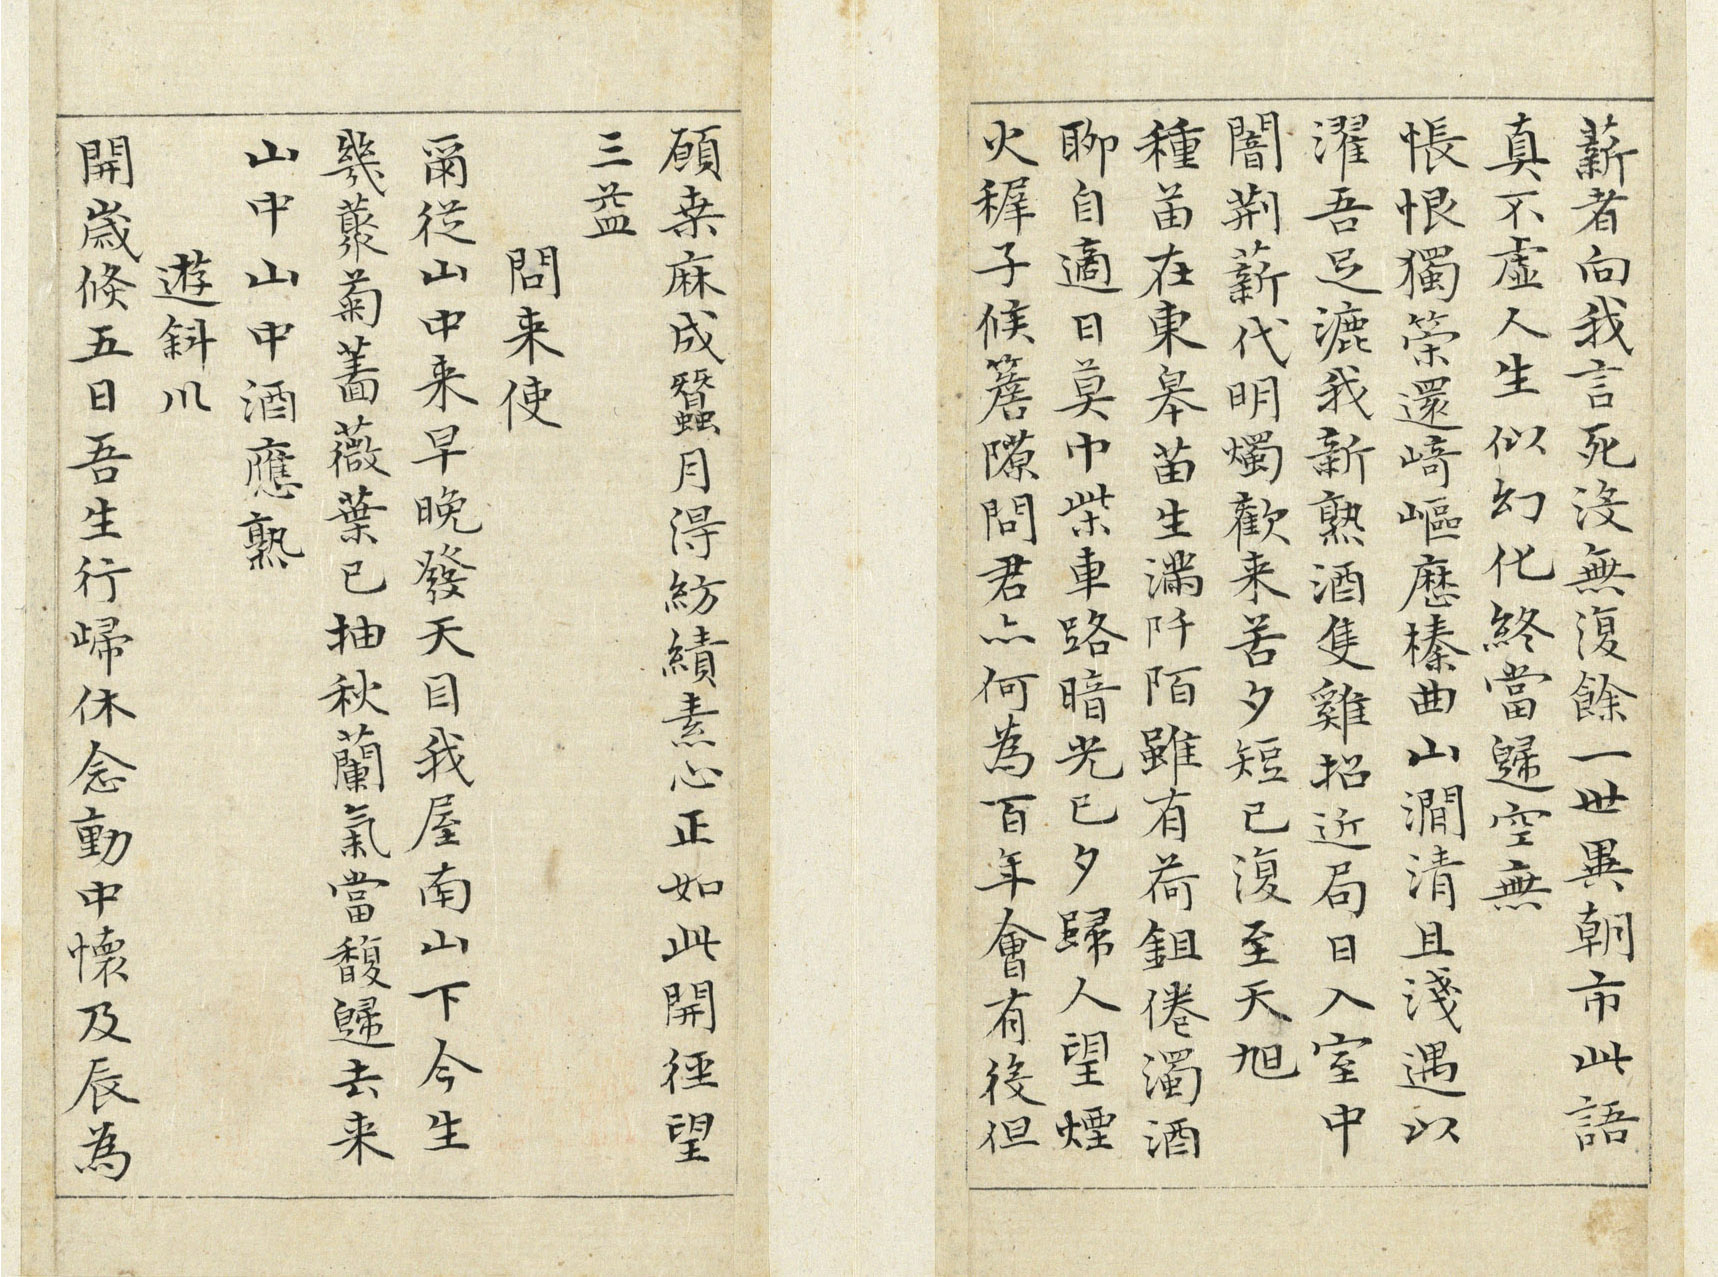 薪者向我言死没無復餘一世異朝市此語
真不虛人生似幻化終當歸空無
悵恨獨策還崎嶇歷榛曲山澗清且淺遇以
濯吾足漉我新熟酒隻雞招近局日入室中
闇荆薪代明燭歡来苦夕短已復至天旭
種苗在東皋苗生滿阡陌雖有荷鉏倦濁酒
聊自適日莫巾柴車路暗光已夕歸人望煙
火穉子候簷隙問君亦何為百年會有役但
願桒麻成蠶月得紡績素心正如此開徑望
三益
問来使
爾從山中来早晚發天目我屋南山下今生
幾叢菊薔薇葉已抽秋蘭氣當馥歸去来
山中山中酒應熟
遊斜川
開歲倐五日吾生行歸休念動中懷及辰為